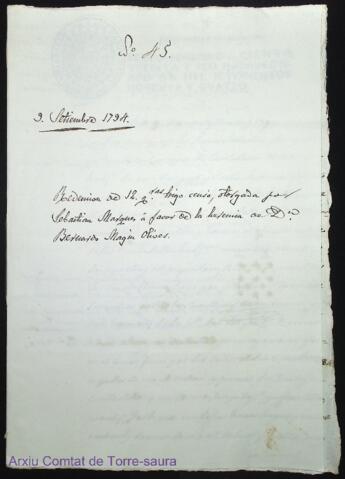 Nº 45.
9. Setiembre 1794.
Redencion de 12. q.ras trigo censo, otorgada por
Sebastian Marques à favor de la herencia de D.n
Bernardo Magin Olives.
Arxiu Comtat de Torre-saura